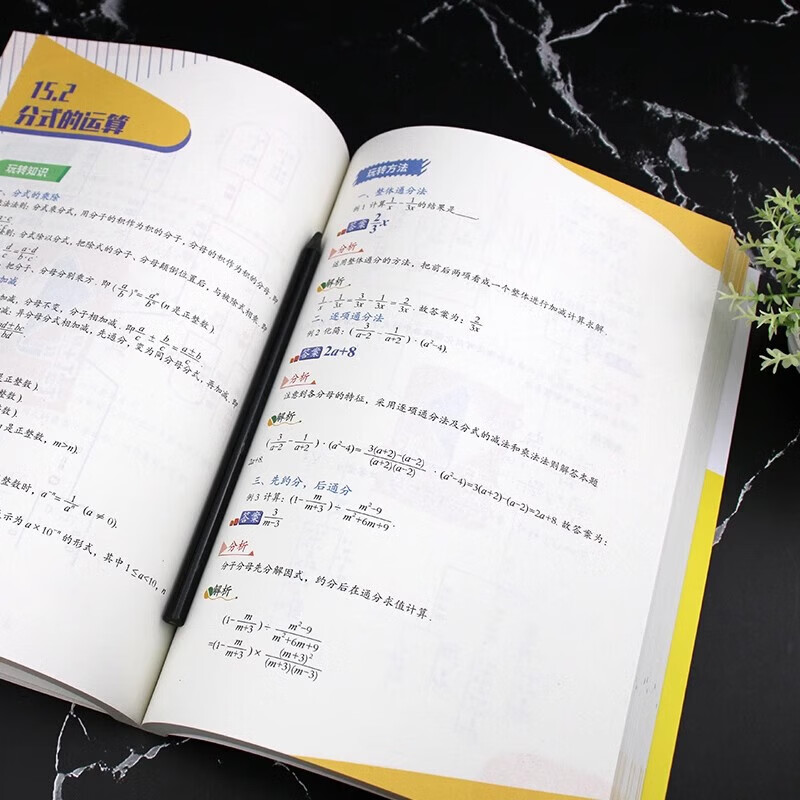 15.2
分式的运算
玩转知识
、分式的乘除
法法则:分式乘分式,用分子的积作为积的分子,分母的积作为积的分母,即
a·c
法则:分式除以分式,把除式的分子、分母颠倒位置后,与被除式相乘,即
d/c = a·d/b·c
把分子、分母分别乘方.即 (a/b)ⁿ=aⁿ/bⁿ (n 是正整数).
加减
加减,分母不变,分子相加减.即 a/c ± b/c = a±b/c
减:异分母分式相加减,先通分,变为同分母分式,再加减.即
ad±bc/bd
是正整数).
整数).
数).
是正整数, m>n).
整数时, a⁻ⁿ= 1/aⁿ (a ≠ 0).
示为 a×10⁻ⁿ 的形式,其中 1≤a<10, n
玩转方法
一、整体通分法
例 1 计算 1/x - 1/3x 的结果是____
答案 2/3 x
分析
运用整体通分的方法,把前后两项看成一个整体进行加减计算求解.
解析
1/x - 1/3x = 3/3x - 1/3x = 2/3x . 故答案为: 2/3x
二、逐项通分法
例 2 化简: (3/a-2 - 1/a+2)·(a²-4).
答案 2a+8
分析
注意到各分母的特征,采用逐项通分法及分式的减法和乘法法则解答本题
解析
(3/a-2 - 1/a+2)·(a²-4)= 3(a+2)-(a-2)/(a+2)(a-2) ·(a²-4)=3(a+2)-(a-2)=2a+8. 故答案为:
2a+8.
三、先约分,后通分
例 3 计算: (1- m/m+3)÷ m²-9/m²+6m+9 .
答案 3/m-3
分析
分子分母先分解因式,约分后在通分求值计算.
解析
(1- m/m+3)÷ m²-9/m²+6m+9
=(1- m/m+3)× (m+3)²/(m+3)(m-3)